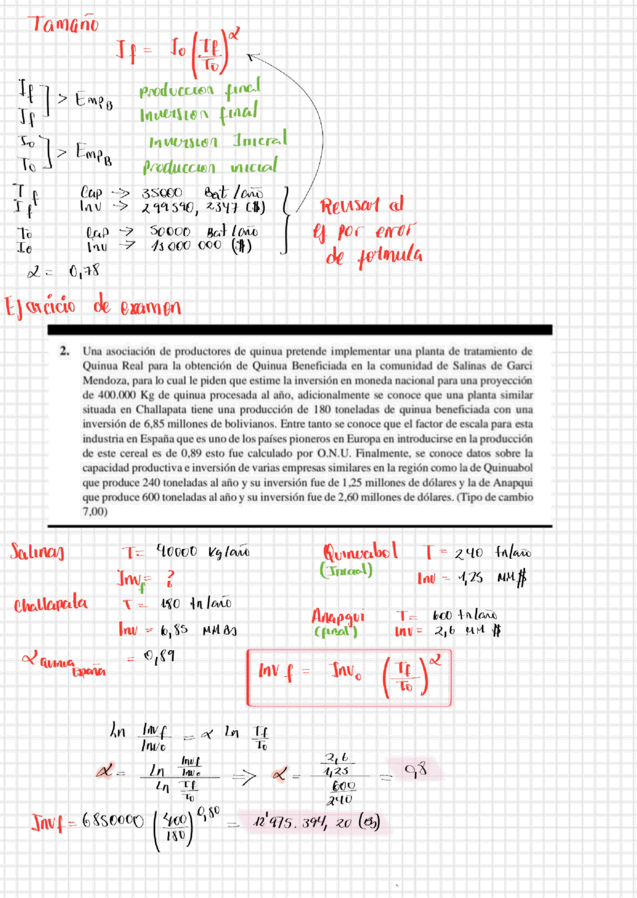 Tamaño
If = Io (Tf/To)^α
If ] > Emp B    Producción final
Tf    Inversión final
Io ] > Emp B    Inversión Inicial
To    Producción inicial
Tf    Cap → 35000 Bat/año
If    Inv → 299590, 2347 ($)
To    Cap → 50000 Bat/año
Io    Inv → 13 000 000 ($)
Revisar el
ej por error
de formula
α = 0,78
Ejercicio de examen
2. Una asociación de productores de quinua pretende implementar una planta de tratamiento de
Quinua Real para la obtención de Quinua Beneficiada en la comunidad de Salinas de Garci
Mendoza, para lo cual le piden que estime la inversión en moneda nacional para una proyección
de 400.000 Kg de quinua procesada al año, adicionalmente se conoce que una planta similar
situada en Challapata tiene una producción de 180 toneladas de quinua beneficiada con una
inversión de 6,85 millones de bolivianos. Entre tanto se conoce que el factor de escala para esta
industria en España que es uno de los países pioneros en Europa en introducirse en la producción
de este cereal es de 0,89 esto fue calculado por O.N.U. Finalmente, se conoce datos sobre la
capacidad productiva e inversión de varias empresas similares en la región como la de Quinuabol
que produce 240 toneladas al año y su inversión fue de 1,25 millones de dólares y la de Anapqui
que produce 600 toneladas al año y su inversión fue de 2,60 millones de dólares. (Tipo de cambio
7,00)
Salinas    T = 40000 kg/año
Inv f = ?
Challapata    T = 180 tn/año
Inv = 6,85 MM Bs
α Quinua España = 0,89
Quinuabol    T = 240 tn/año
(Inicial)    Inv = 1,25 MM $
Anapqui    T = 600 tn/año
(final)    Inv = 2,6 MM $
Inv f = Inv o (Tf/To)^α
ln Invf/Invo = α ln Tf/To
α = (ln Invf/Invo)/(ln Tf/To) ⇒ α = (2,6/1,25)/(600/240) = 0,8
Inv f = 6850000 (400/180)^0,80 = 12'975.394, 20 (Bs)